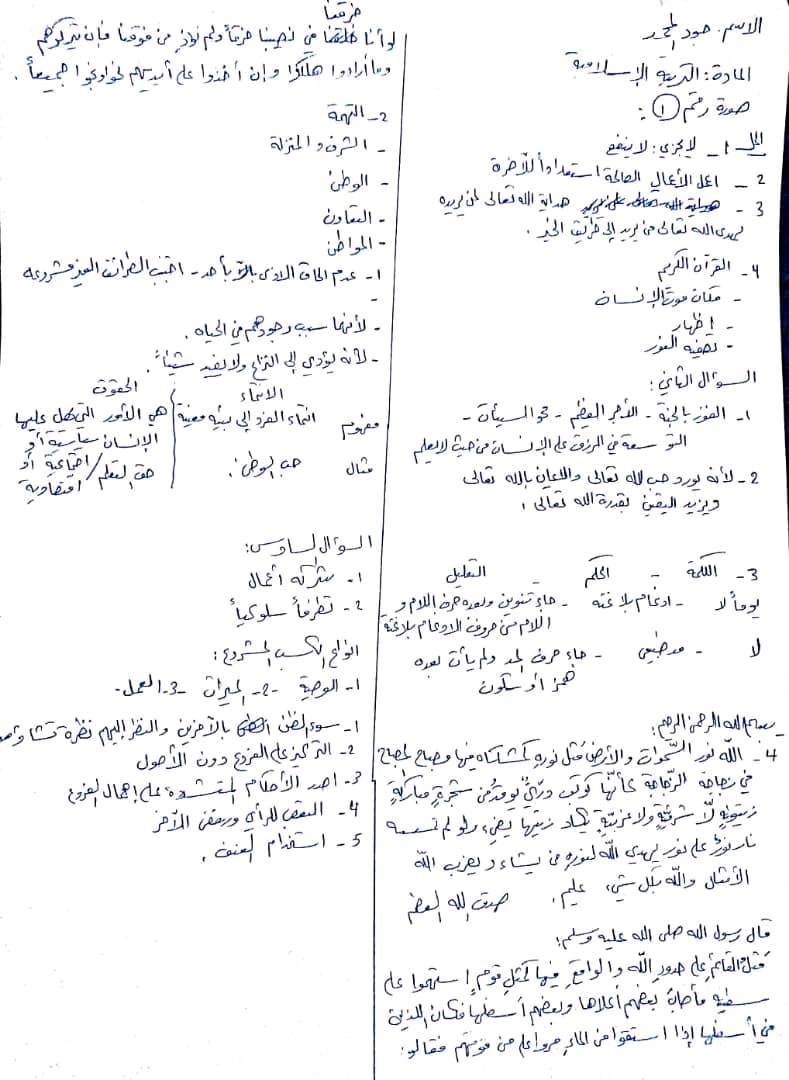 الاسم: جود المحمد
المادة: التربية الإسلامية
صورة رقم ①:
الحل 1- لا يجزي: لا ينفع
2- اعمل الأعمال الصالحة استعداداً للآخرة
3- هداية الله تعالى لمن يريده
يهدي الله تعالى من يريد إلى طريق الخير.
4- القرآن الكريم
- مكان موت الإنسان
- إظهار
- تصفية النور
السؤال الثاني:
1- الفوز بالجنة - الأجر العظيم - محو السيئات -
التوسعة في الرزق على الإنسان من حيث لا يعلم
2- لأنه يورد حب لله تعالى والإيمان بالله تعالى
ويزيد اليقين بقدرة الله تعالى.
3- الكلمة - الحكم - التعليل
يوماً لا - ادغام بلا غنة - جاء تنوين وبعده حرف اللام و
اللام من حروف الادغام بلا غنة
لا - مد طبيعي - جاء حرف المد ولم يأت بعده
همز أو سكون
بسم الله الرحمن الرحيم:
4- اللّه نور السَّموات والأرض مَثل نوره كمشكاه فيها مصباح المصباح
في زجاجة الزّجاجة كأنّها كوكب درّيٌّ يوقد من شجرةٍ مباركةٍ
زيتونةٍ لّا شرقيّةٍ ولا غربيّةٍ يكاد زيتها يضيء ولو لم تمسسه
نار نورٌ على نور يهدي اللّه لنوره من يشاء ويضرب اللّه
الأمثال واللّه بكل شيء عليم. صدق الله العظيم
قال رسول الله صلى الله عليه وسلم:
مَثل القائم على حدود اللّه والواقع فيها كمثل قومٍ استهموا على
سفينه فأصاب بعضهم أعلاها وبعضهم أسفلها فكان الذين
في أسفلها إذا استقوا من الماء مروا على من فوقهم فقالو:
خرقنا
لو أنا في نصيبنا خرقاً ولم نؤذِ من فوقنا فإن تتركوهم
وما أرادوا هلكوا وإن أخذوا على أيديهم نجوا ونجوا جميعاً.
2- التهمة
- الشرف والمنزلة
- الوطن
- التعاون
- المواطن
1- عدم الحاق الاذى بالآباحد - اجتنب الطرائق الغير مشروعه
-
- لأنهما سبب وجودهم في الحياه.
- لأنه يؤدي إلى النزاع ولا يفيد شيئاً.
الانتماء الحقوق
مفهوم انتماء الفرد إلى بيئه معينة هي الأمور التي يحصل عليها
الإنسان سياسية أو
اجتماعية أو
اقتصادية
مثال حب الوطن. حق التعلم
السؤال السادس:
1- شركه أعمال
2- تطرفاً سلوكياً
انواع الكسب المشروع:
1- الوصية -2- الميراث -3- العمل.
1- سوء الظن بالآخرين والنظر إليهم نظرة تشاؤمية
2- التركيز على الفروع دون الأصول
3- اصدر الأحكام المتشدده على إهمال الفروع
4- التعصب للرأي ورفض الآخر
5- استخدام العنف.